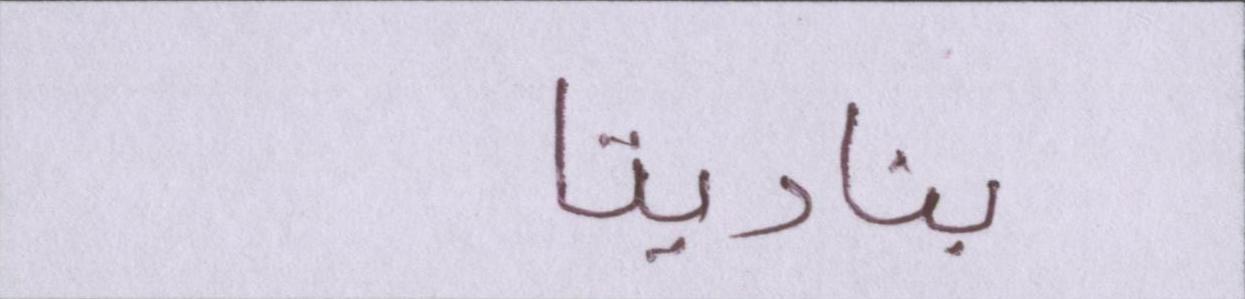 بناديتا